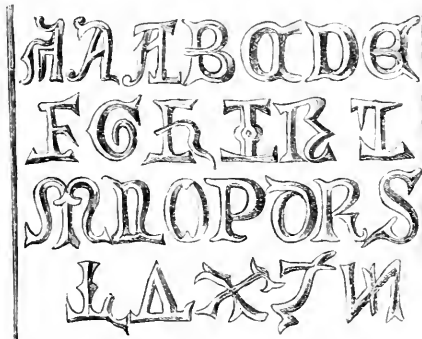 A A A B C D E
F G H I K L
M N O P Q R S
X